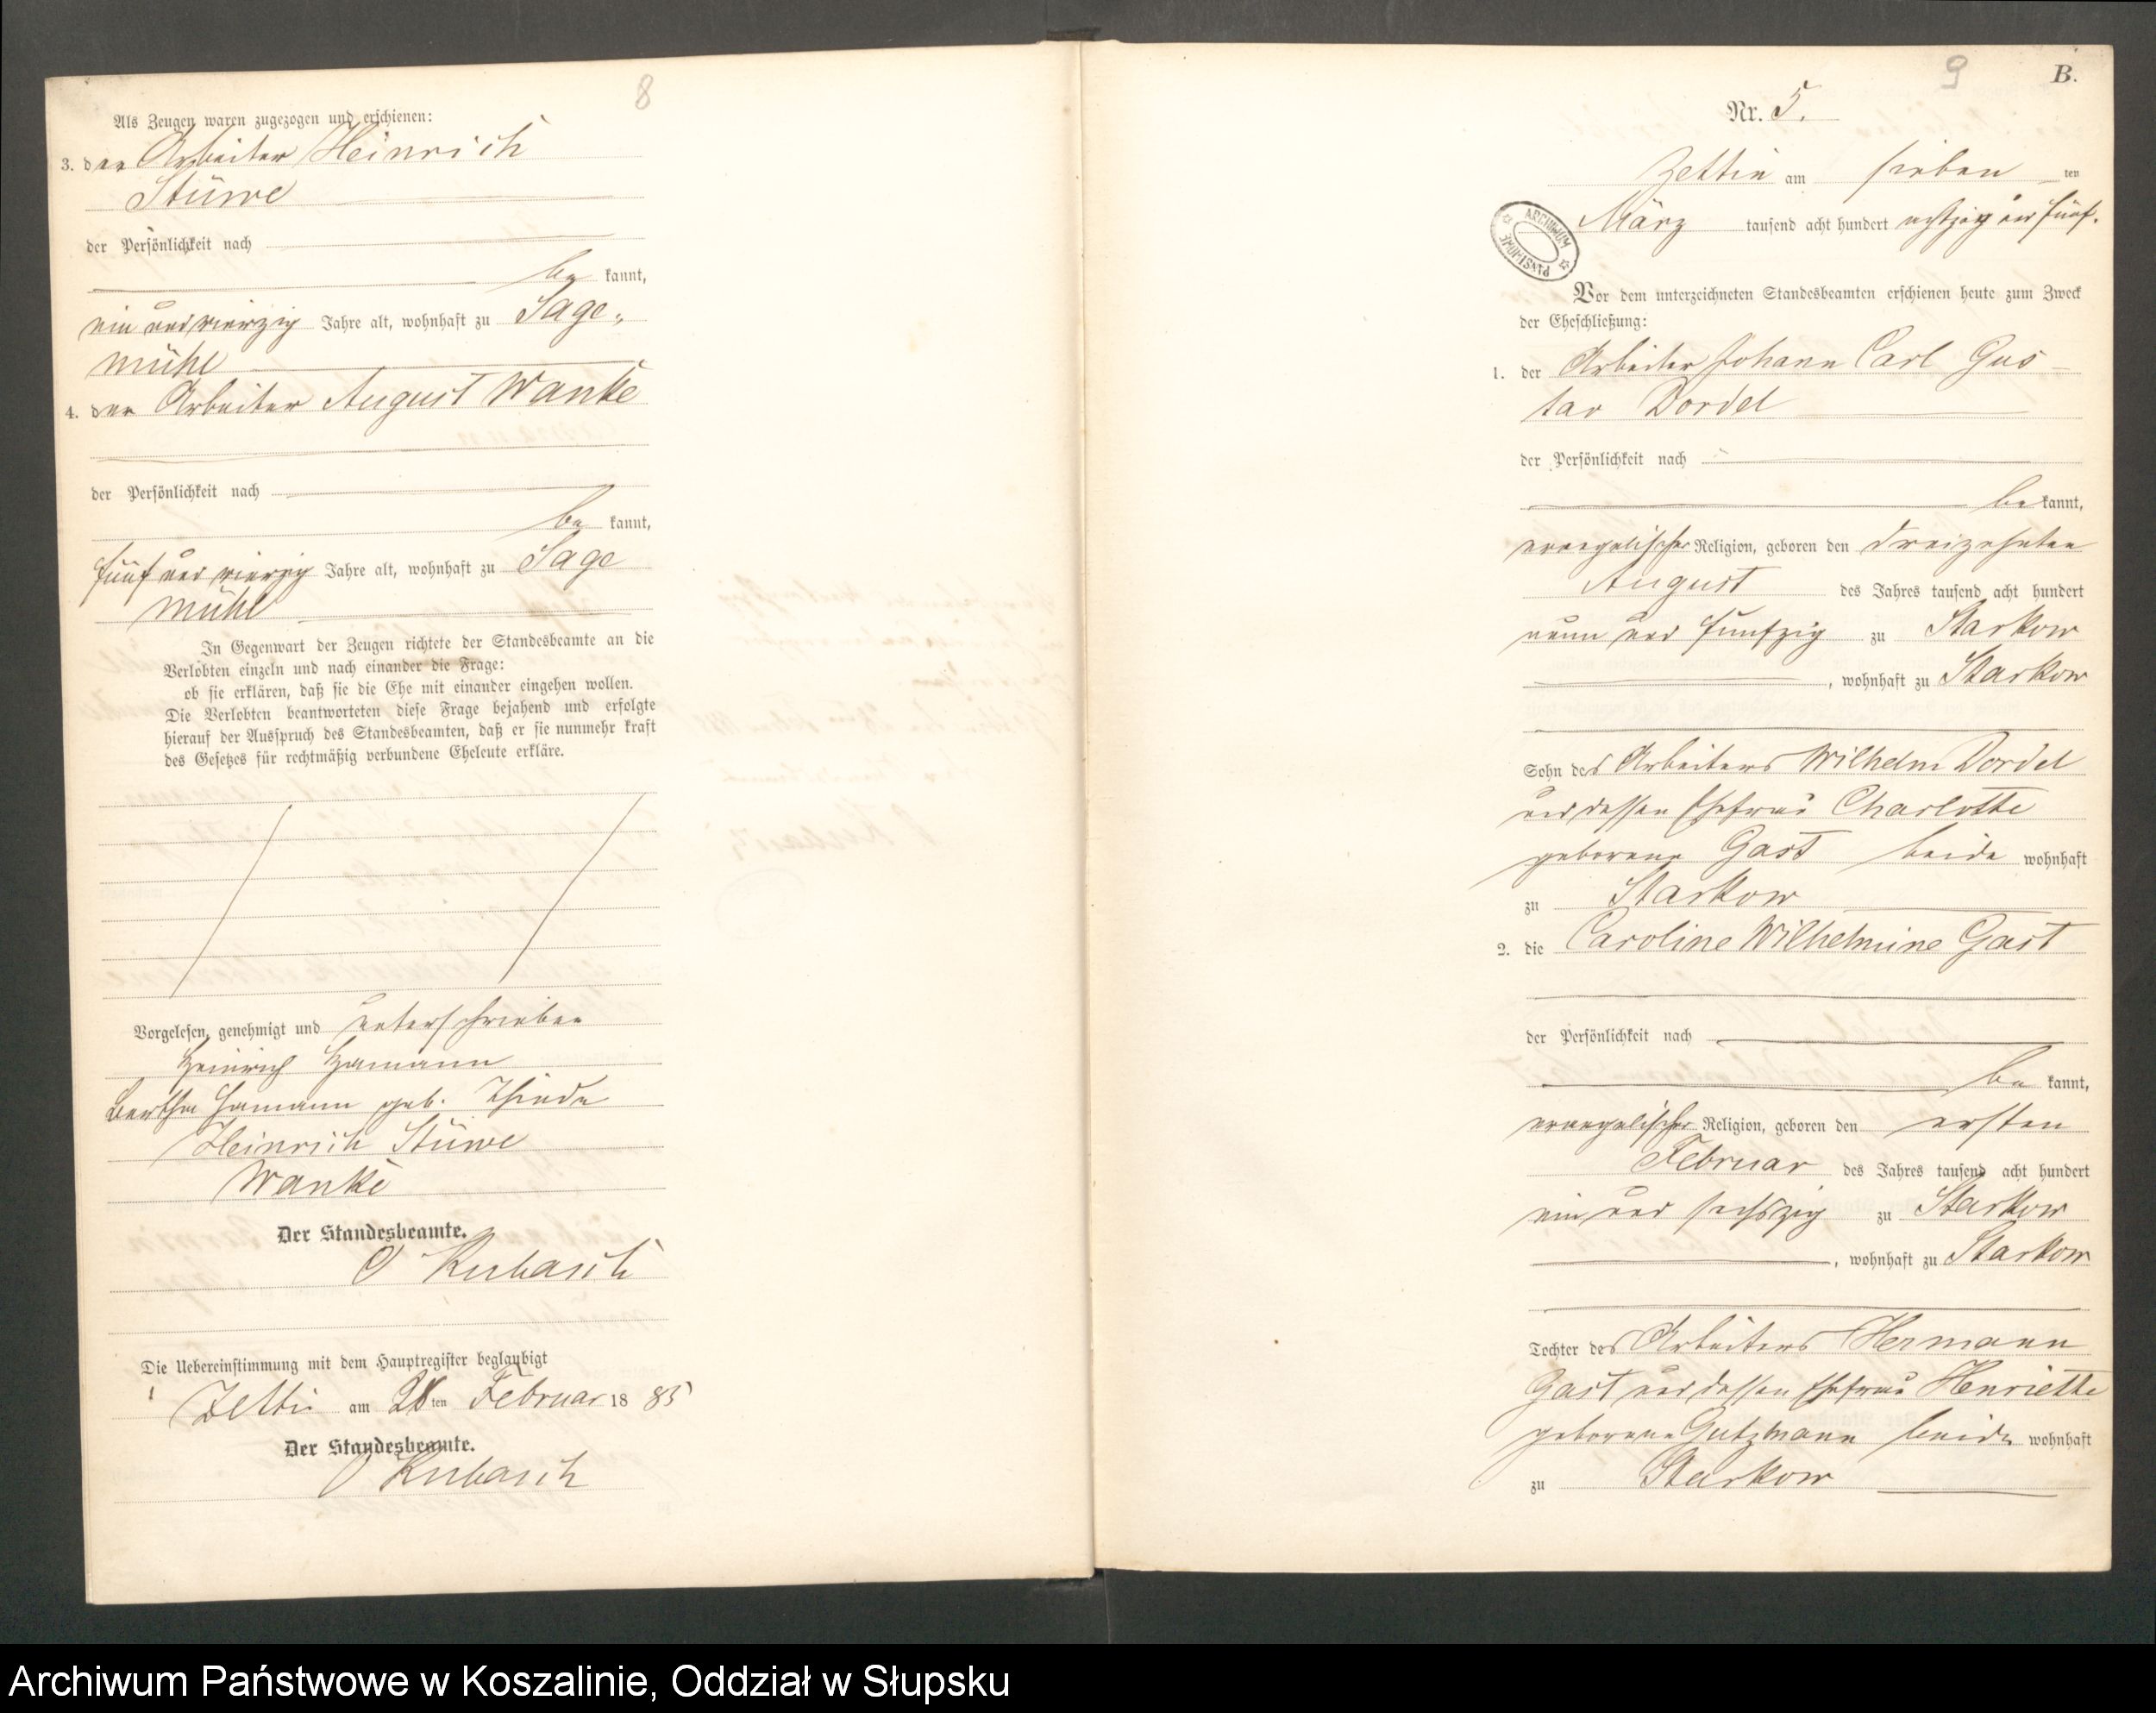 8
Als Zeugen waren zugezogen und erschienen:
3. der Arbeiter Heinrich
Stüwe
der Persönlichkeit nach
be kannt,
ein und vierzig Jahre alt, wohnhaft zu Sage„
mühl
4. der Arbeiter August Wanke
der Persönlichkeit nach
be kannt,
fünf und vierzig Jahre alt, wohnhaft zu Sage
mühl
In Gegenwart der Zeugen richtete der Standesbeamte an die
Verlobten einzeln und nach einander die Frage:
ob sie erklären, daß sie die Ehe mit einander eingehen wollen.
Die Verlobten beantworteten diese Frage bejahend und erfolgte
hierauf der Ausspruch des Standesbeamten, daß er sie nunmehr kraft
des Gesetzes für rechtmäßig verbundene Eheleute erkläre.
Vorgelesen, genehmigt und unterschrieben
Heinrich Hamann
Bertha Hamann geb. Thiede
Heinrich Stüwe
Wanke
Der Standesbeamte.
O Kubasch
Die Uebereinstimmung mit dem Hauptregister beglaubigt
Zettin am 28 ten Februar 18 85
Der Standesbeamte.
O Kubasch
9
B.
Nr. 5.
Zettin am sieben ten
März tausend acht hundert achtzig und fünf.
ARCHIWUM PAŃSTWOWE
Vor dem unterzeichneten Standesbeamten erschienen heute zum Zweck
der Eheschließung:
1. der Arbeiter Johann Carl Gus-
tav Dordel
der Persönlichkeit nach
be kannt,
evangelischer Religion, geboren den dreizehnten
August des Jahres tausend acht hundert
neun und funfzig zu Starkow
, wohnhaft zu Starkow
Sohn des Arbeiters Wilhelm Dordel
und dessen Ehefrau Charlotte
geborene Gast beide wohnhaft
zu Starkow
2. die Caroline Wilhelmine Gast
der Persönlichkeit nach
be kannt,
evangelischer Religion, geboren den ersten
Februar des Jahres tausend acht hundert
ein und sechszig zu Starkow
, wohnhaft zu Starkow
Tochter des Arbeiters Hermann
Gast und dessen Ehefrau Henriette
geborene Gutzmann beide wohnhaft
zu Starkow
Archiwum Państwowe w Koszalinie, Oddział w Słupsku